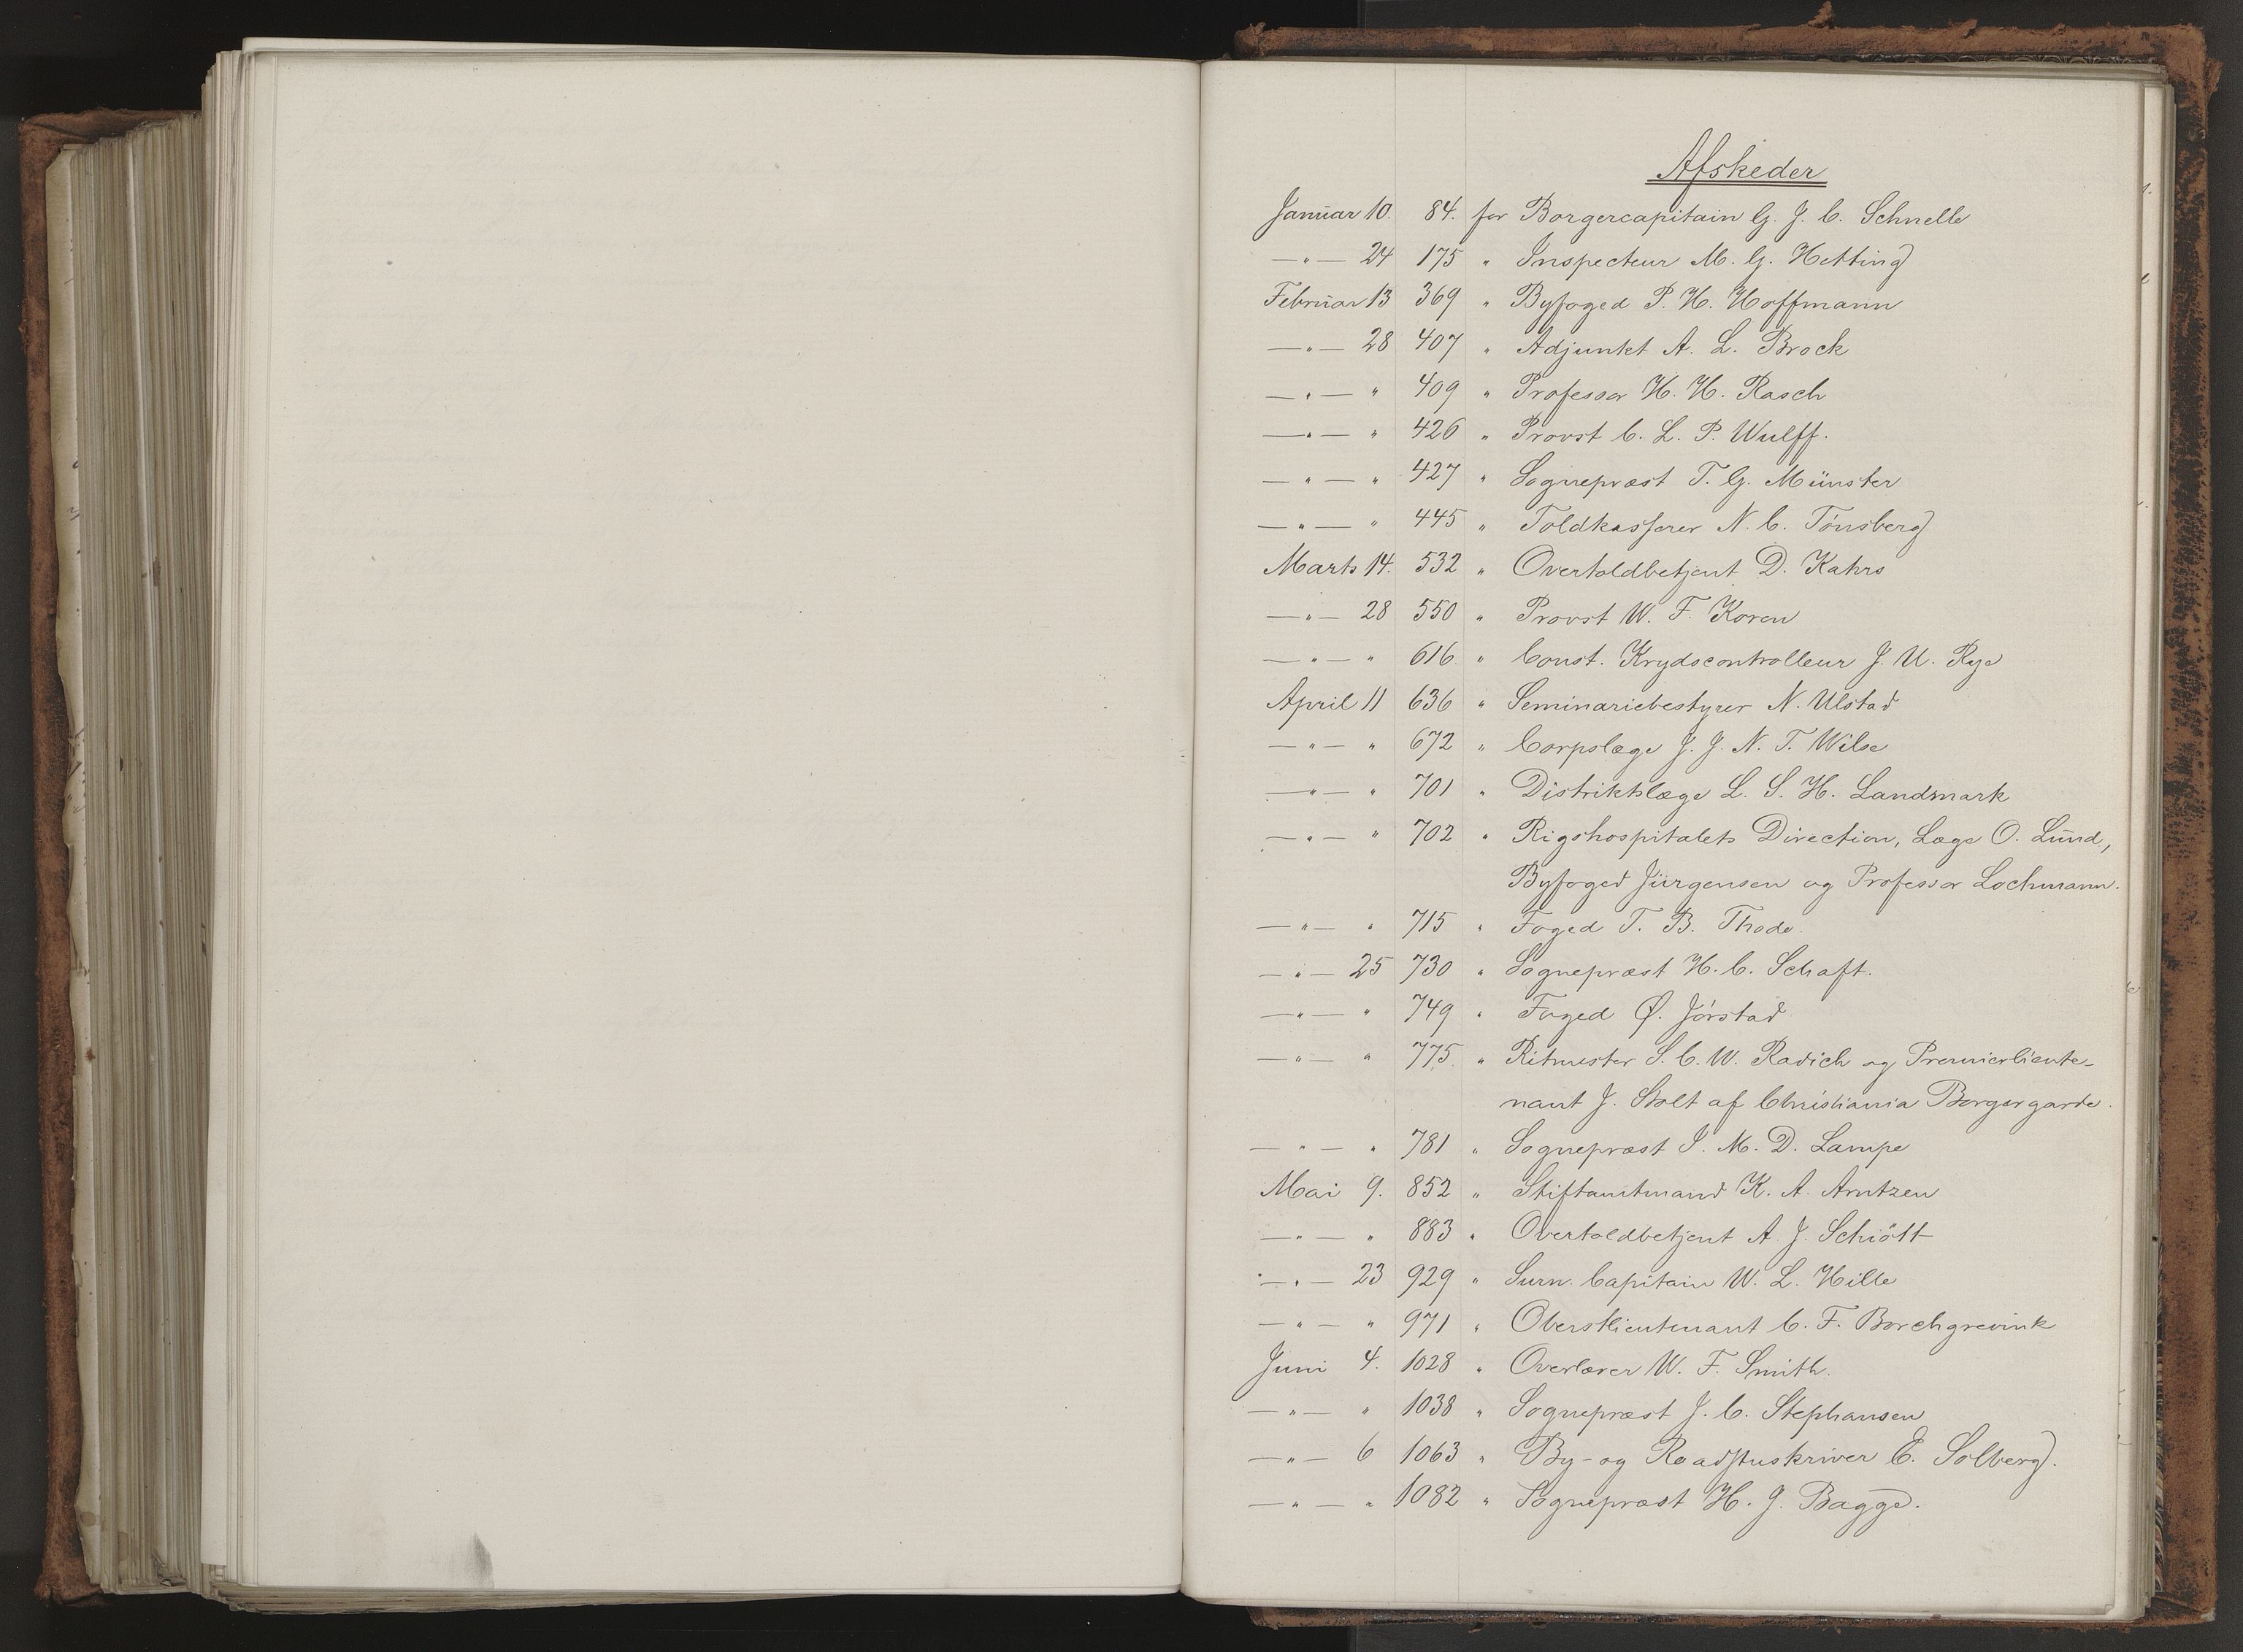 Afskeder
Januar 10. 84. for Borgercapitain G. J. C. Schnelle
—"— 24 175 " Inspecteur M. G. Hetting
Februar 13 369 " Byfoged P. H. Hoffmann
—"— 28 407 " Adjunkt A. L. Brock
—"— " 409 " Professor H. H. Rasch
—"— " 426 " Provst C. L. P. Wulff.
—"— " 427 " Sognepræst T. G. Münster
—"— " 445 " Toldkasserer N. C. Tønsberg
Marts 14. 532 " Overtoldbetjent D. Kahrs
—"— 28 550 " Provst W. F. Koren
—"— " 616 " Const. Krydscontrolleur J. U. Rye
April 11 636 " Seminariebestyrer N. Ulstad
—"— " 672 " Corpslæge J. J. N. T. Wilse
—"— " 701 " Distriktslæge L. S. H. Landmark
—"— " 702 " Rigshospitalets Direction, Læge O. Lund,
Byfoged Jürgensen og Professor Lochmann.
—"— " 715 " Foged T. B. Thode.
—"— 25 730 " Sognepræst H. C. Schaft.
—"— " 749 " Foged Ø. Jørstad
—"— " 775 " Ritmester S. C. W. Radich og Premierlieute-
nant J. Stolt af Christiania Borgergarde.
—"— " 781 " Sognepræst I. M. D. Lampe
Mai 9. 852 " Stiftamtmand K. A. Arntzen
—"— " 883 " Overtoldbetjent A J. Schiøtt
—"— 23 929 " Surn. Capitain W. L. Hille
—"— " 971 " Oberstlieutenant C. F. Borchgrevink
Juni 4. 1028 " Overlærer W. F. Smith.
—"— " 1038 " Sognepræst J. C. Stephansen
—"— 6 1063 " By- og Raadstuskriver E. Solberg.
—"— " 1082 " Sognepræst H. J. Bagge.